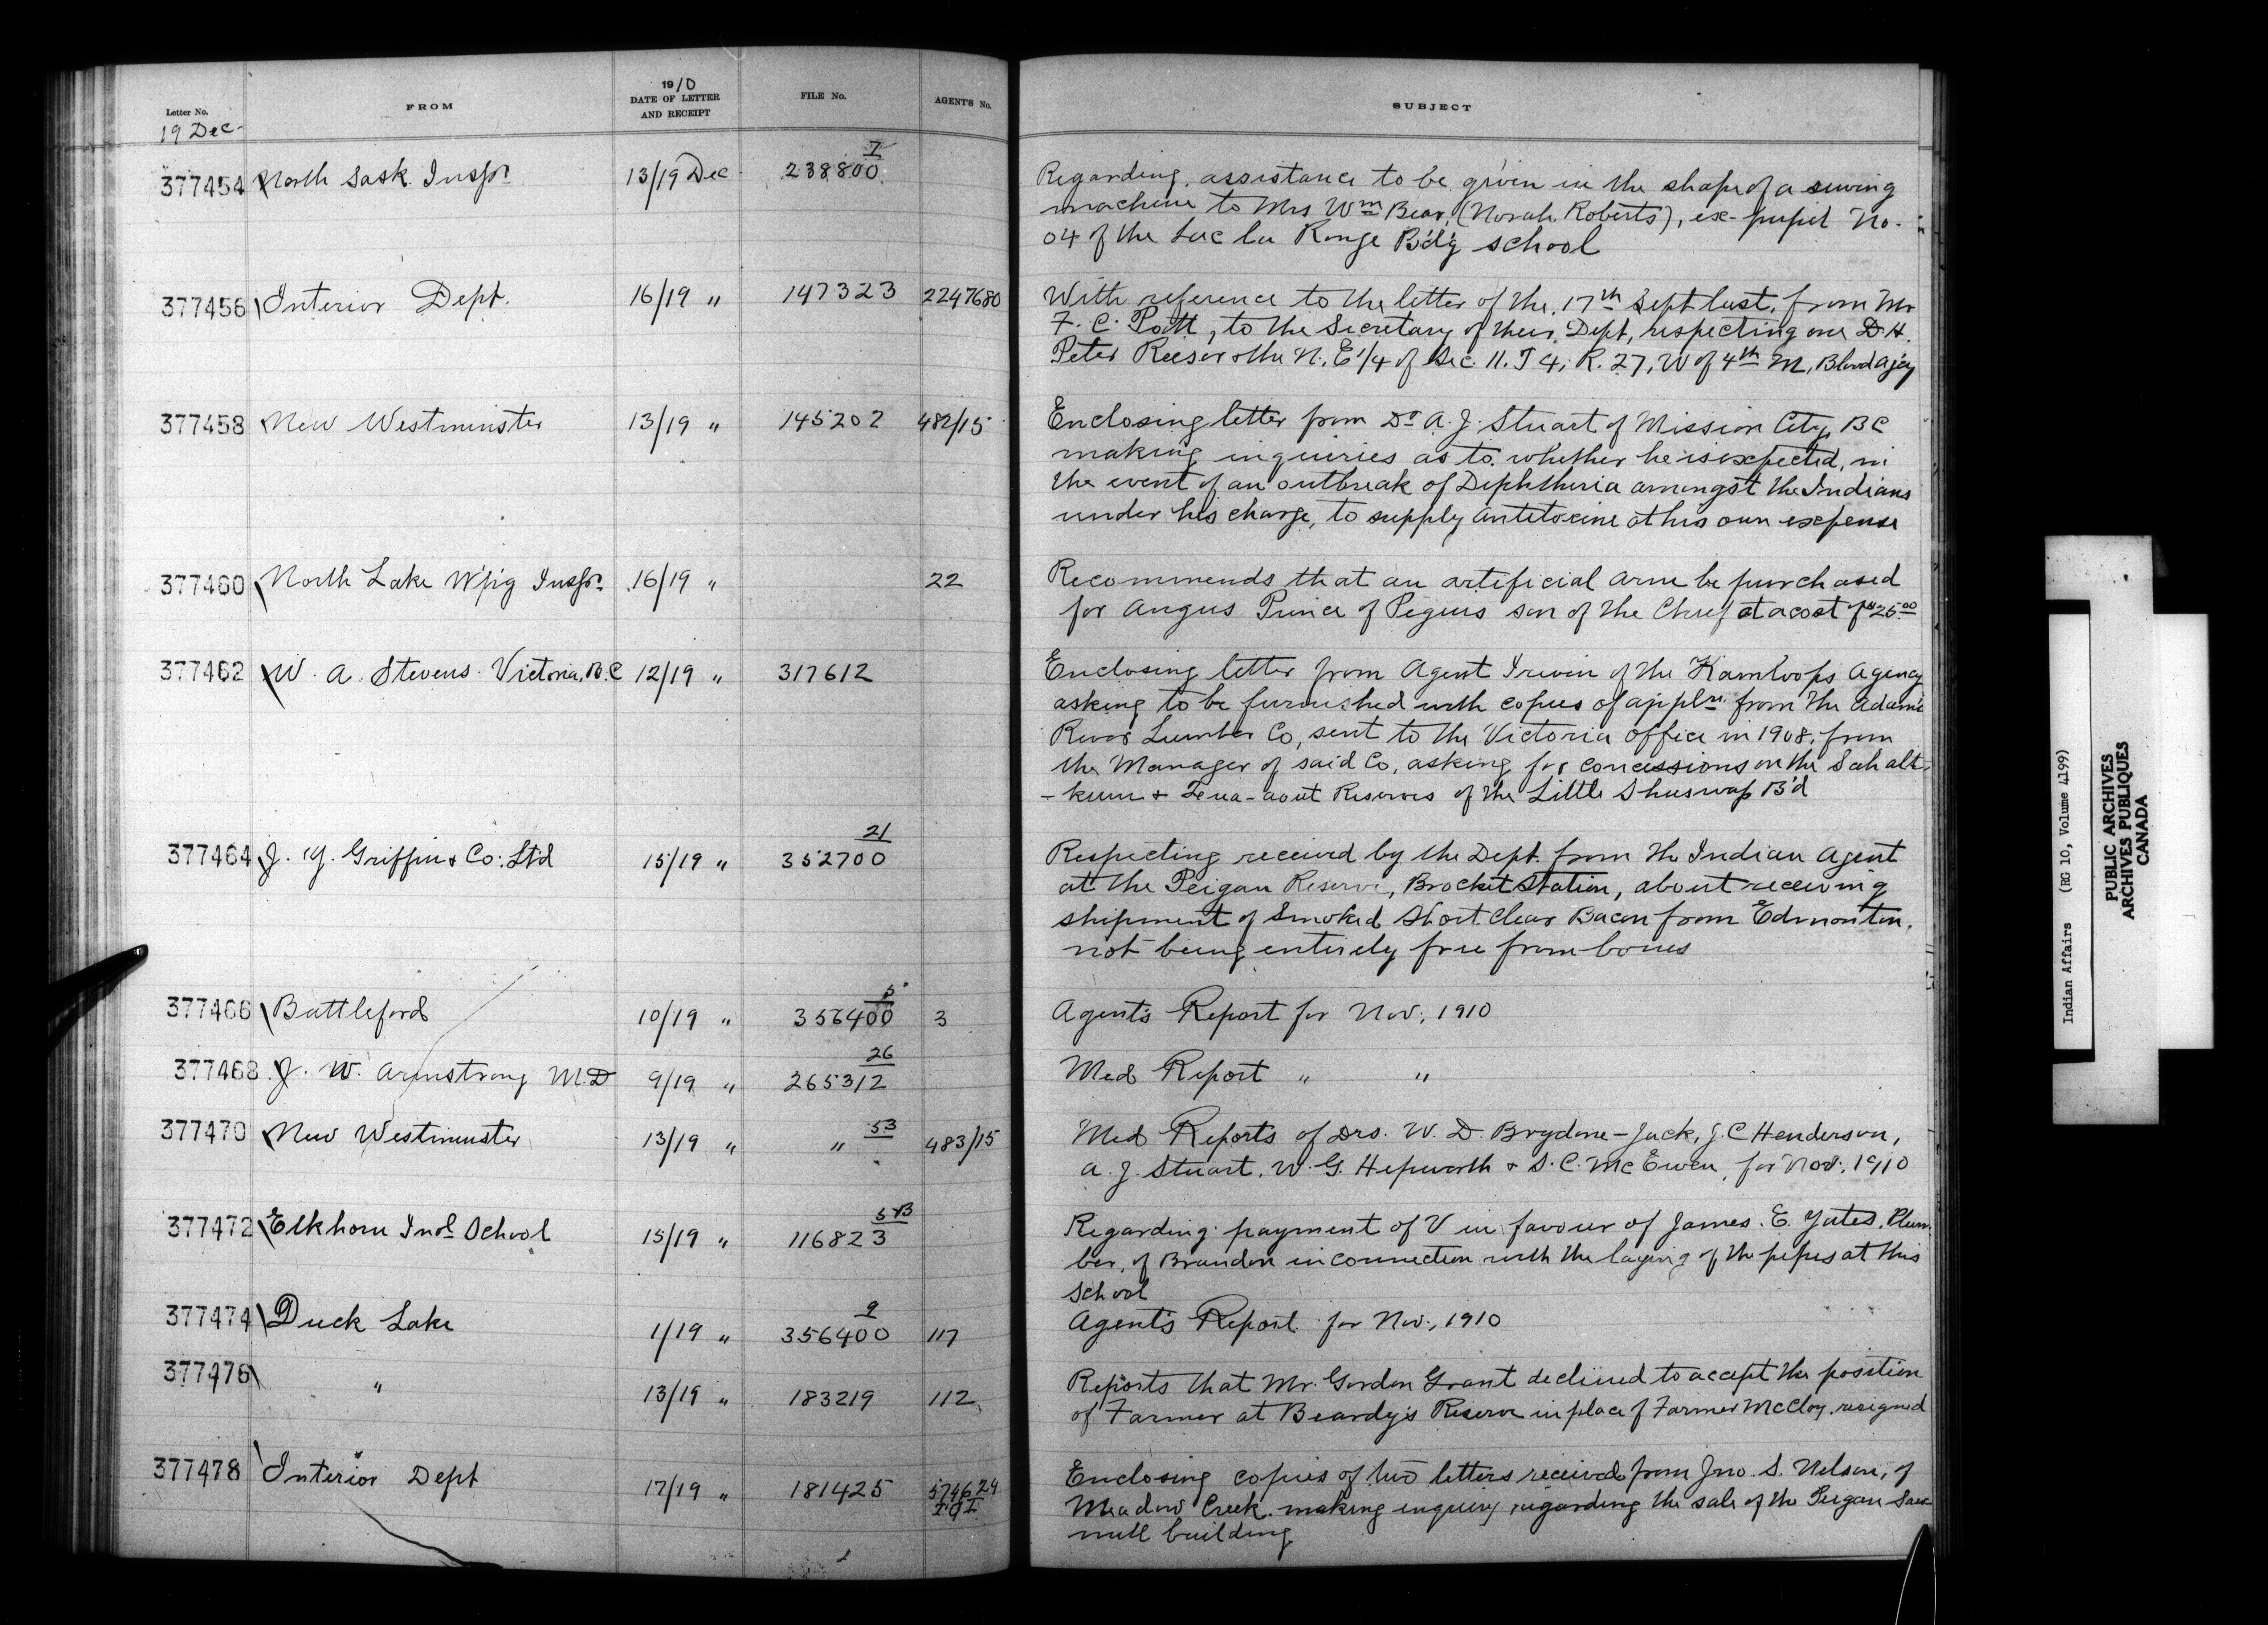 Letter No.
FROM
1910
DATE OF LETTER
AND RECEIPT
FILE No.
AGENT'S No.
SUBJECT
19 Dec
377454 North Sask. Inspr. 13/19 Dec 238800 I
Regarding assistance to be given in the shape of a sewing
machine to Mrs Wm Bear, (Norah Roberts), ex-pupil No.
04 of the Lac la Ronge B'd'g school
377456 Interior Dept. 16/19 " 147323 2247680
With reference to the letter of the 17th Sept last, from Mr
F. C. Pott, to the Secretary of their Dept, respecting one D.H.
Peter Reesor & the N. E 1/4 of Sec. 11. T 4, R. 27, W of 4th M, Blood Ajcy
377458 New Westminster 13/19 " 145202 482/15
Enclosing letter from Dr A. J. Stuart of Mission City, BC
making inquiries as to whether he is expected, in
the event of an outbreak of Diphtheria amongst the Indians
under his charge, to supply antitoxine at his own expense
377460 North Lake W'p'g Inspr. 16/19 " 22
Recommends that an artificial arm be purchased
for Angus Prince of Peguis son of the Chief at a cost of $25.00
377462 W. A. Stevens Victoria, B.C 12/19 " 317612
Enclosing letter from Agent Irwin of the Kamloops Agency
asking to be furnished with copies of appln. from the Adams
River Lumber Co, sent to the Victoria office in 1908, from
the Manager of said Co, asking for concessions on the Sahalt-
-kum & -aout Reserves of the Little Shuswap B'd
377464 J. Y. Griffin & Co: Ltd 15/19 " 352700 21
Respecting received by the Dept. from the Indian Agent
at the Peigan Reserve, Brocket Station, about receiving
shipment of Smoked Short Clear Bacon from Edmonton,
not being entirely free from bones
377466 Battleford 10/19 " 356400 5 3
Agent's Report for Nov, 1910
377468 J. W. Armstrong M.D 9/19 " 265312 26
Med Report " "
377470 New Westminster 13/19 " " 53 483/15
Med Reports of Drs. W. D. Brydone-Jack, J. C Henderson,
A. J. Stuart, W. G. Hepworth & S. C. McEwen, for Nov, 1910
377472 Elkhorn Indl School 15/19 " 116823 5 B
Regarding payment of V in favour of James. E. Yates, Plum-
ber, of Brandon in connection with the laying of the pipes at this
school
377474 Duck Lake 1/19 " 356400 9 117
Agent's Report for Nov, 1910
377476 " 13/19 " 183219 112
Reports that Mr. Gordon Grant declined to accept the position
of Farmer at Beardy's Reserve in place of Farmer McCloy, resigned
377478 Interior Dept 17/19 " 181425 574624
Enclosing copies of two letters received from Jno. S. Nelson, of
Meadow Creek making enquiry regarding the sale of the Peigan Saw
mill building
Indian Affairs (RG 10, Volume 4199)
PUBLIC ARCHIVES
ARCHIVES PUBLIQUES
CANADA